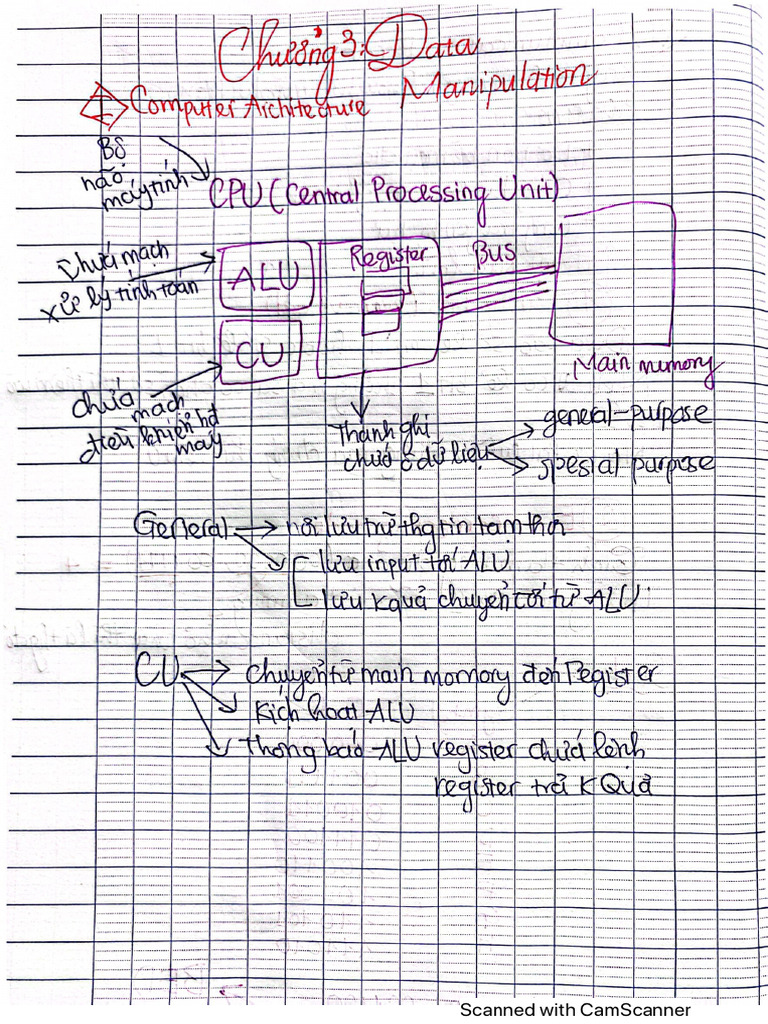 Chương 3: Data
Manipulation
I Computer Architecture
Bộ
não
máy tính
CPU (Central Processing Unit)
Chứa mạch
xử lý tính toán
ALU
Register
Bus
CU
Main memory
chứa
mạch
điều khiển hđ
máy
Thanh ghi
chứa ô dữ liệu
general-purpose
spesial purpose
General → nơi lưu trữ thg tin tạm thời
lưu input tới ALU
lưu kquả chuyển tới từ ALU
CU → Chuyển từ main momory đến Register
Kích hoạt ALU
Thông báo ALU register chứa lệnh
register trả KQuả
Scanned with CamScanner